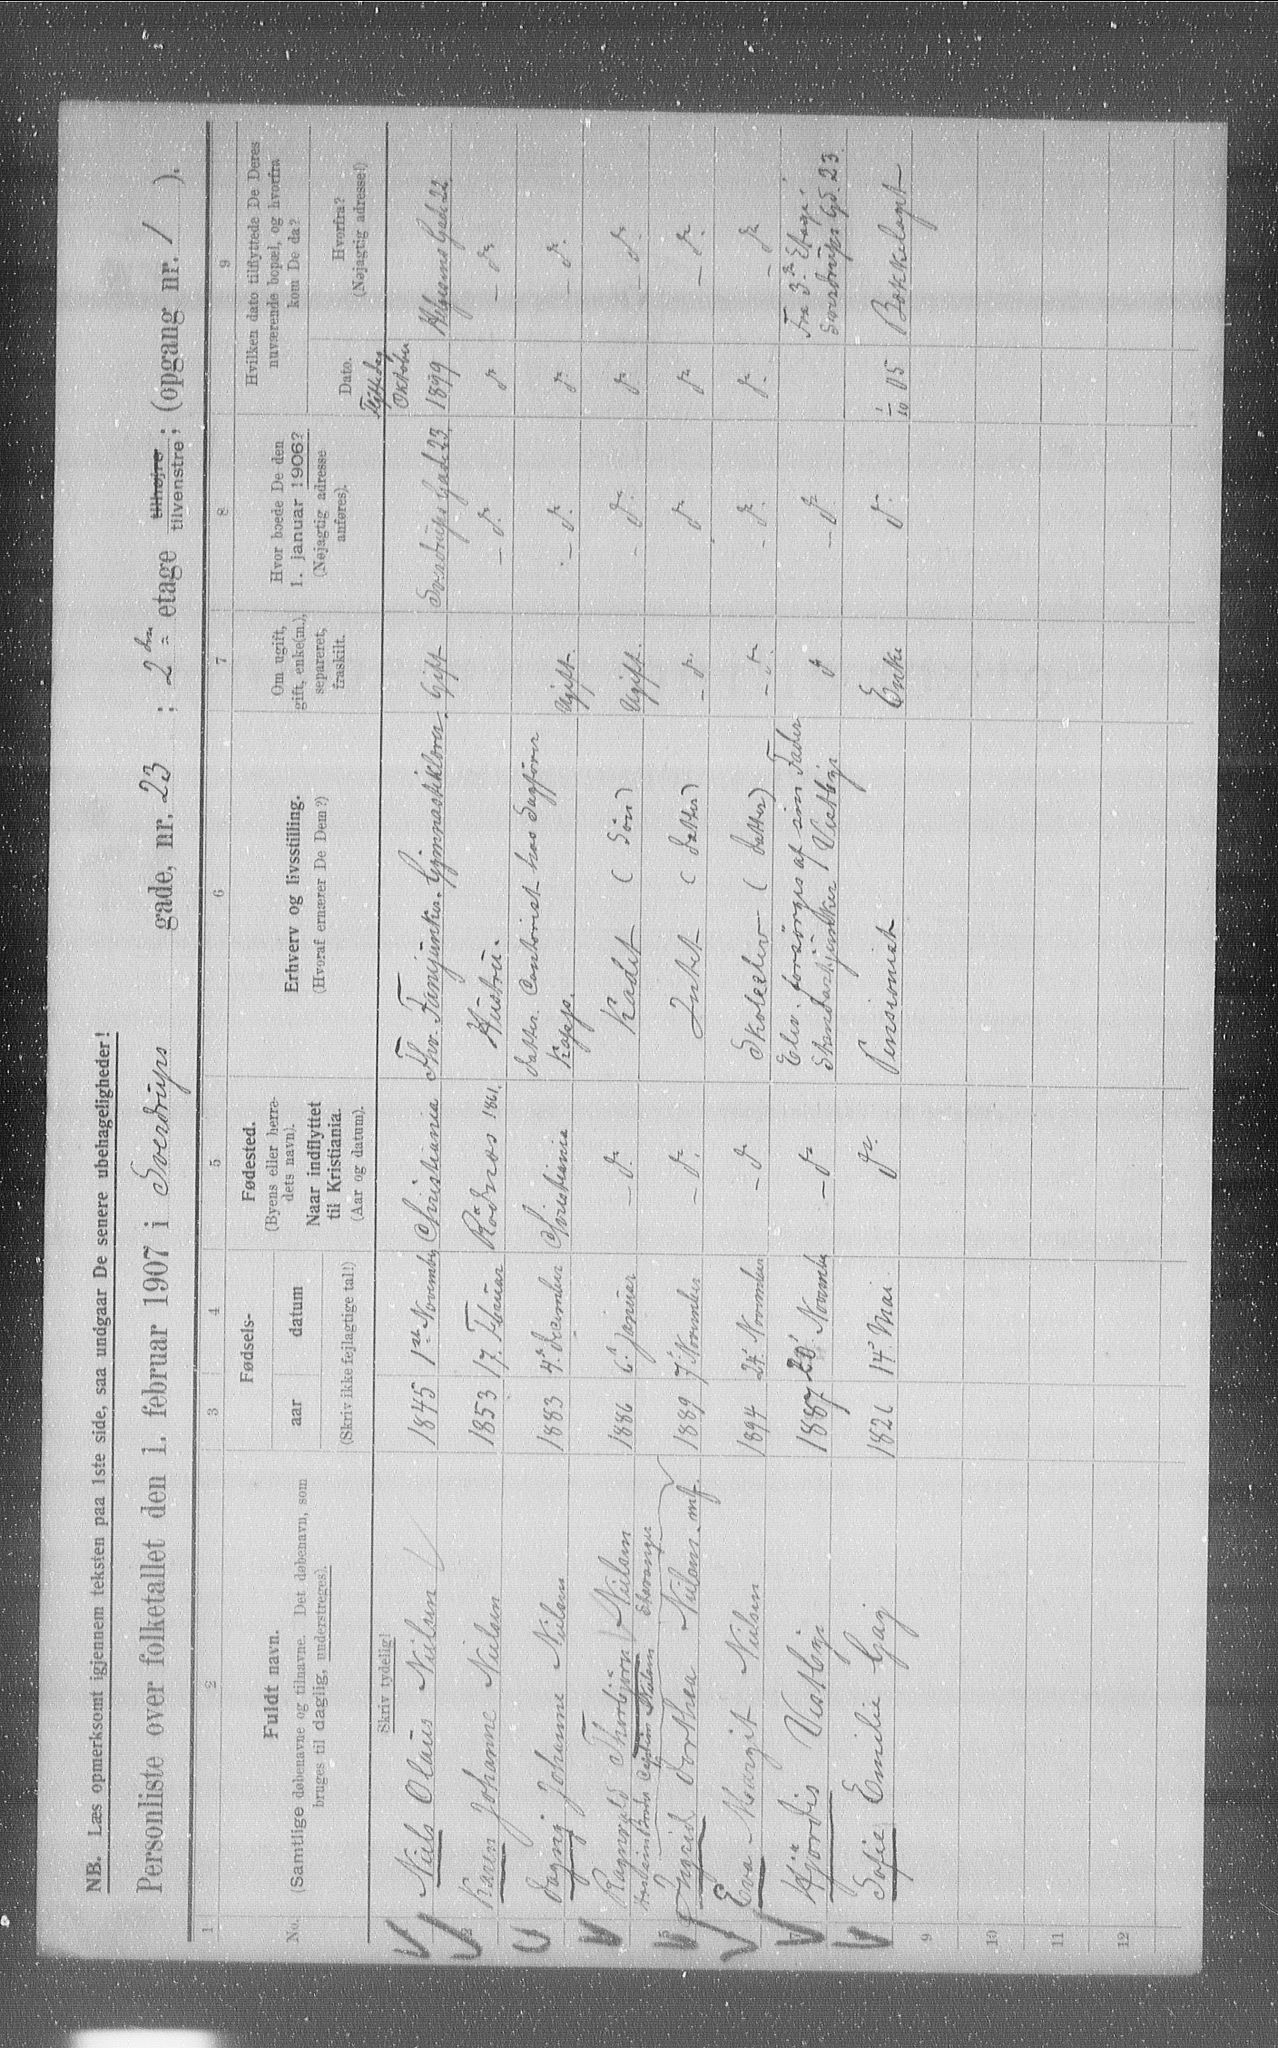 NB. Læs opmerksomt igjennem teksten paa 1ste side, saa undgaar De senere ubehageligheder!
Personliste over folketallet den 1. februar 1907 i Sverdrups gade, nr. 23 ; 2den etage tilhøjre tilvenstre ; (opgang nr. 1 ).
1 2 3 4 5 6 7 8 9
No.
Fuldt navn.
(Samtlige døbenavne og tilnavne. Det døbenavn, som
bruges til daglig, understreges).
Fødsels-
aar datum
(Skriv ikke fejlagtige tal!)
Fødested.
(Byens eller herre-
dets navn).
Naar indflyttet
til Kristiania.
(Aar og datum).
Erhverv og livsstilling.
(Hvoraf ernærer De Dem?)
Om ugift,
gift, enke(m.),
separeret,
fraskilt.
Hvor boede De den
1. januar 1906?
(Nøjagtig adresse
anføres).
Hvilken dato tilflyttede De Deres
nuværende bopæl, og hvorfra
kom De da?
Dato.
Hvorfra?
(Nøjagtig adresse!)
Skriv tydelig!
Niels Olaus Nielsen 1845 1ste November Christiania Fhv. Fanejunker. Gymnastiklærer. Gift Sverdrups Gade 23. Oktober 1899 Helgesens Gade 22.
2 Karen Johanne Nielsen 1853 17. Februar 1861. Hustru. - do. do - do
Dagny Johanne Nielsen 1883 4de December Christiania Datter. Contorist hos Sagfører
Kopp. Ugift. - do. do - do.
Ragnvald Thorbjørn Nielsen 1886 6te Januar - do. Kadet ( Søn ) Ugift. - do. do - do.
5 Ingrid Dorthea Nielsen. mf. 1889 7de November - do. Intet ( Datter ) - do. do do - do.
Eva Margit Nielsen 1894 24de November - do Skoleelev ( Datter ) - do. - do. do. - do
7 Hjørdis Vestbye 1887 20de November - do Elev. forsørges af sin Fader
Standartjunker Vestbye do - do Fra 3die Etage
Sverdrups Gd. 23.
Sofie Emilie Gai 1821 14de Mai. do. Pensionist Enke do. 1/10 05 Bækkelaget
9
10
11
12